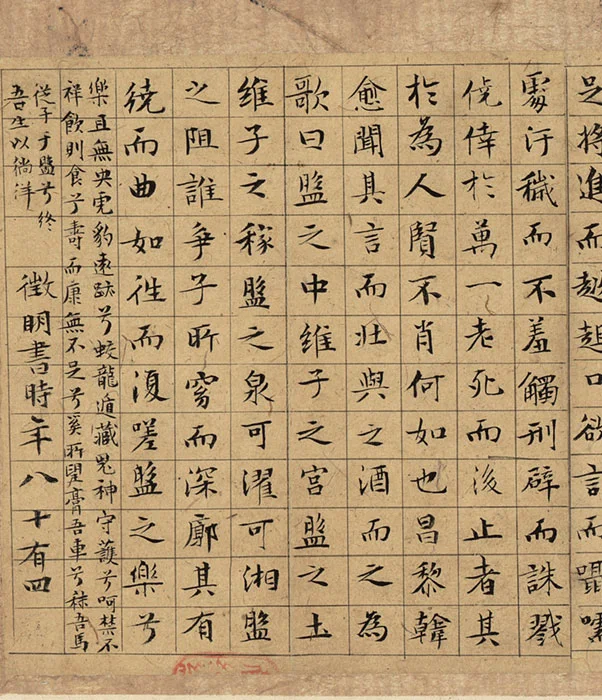 足將進而趑趄口欲言而囁嚅
處汙穢而不羞觸刑辟而誅戮
僥倖於萬一老死而後止者其
於為人賢不肖何如也昌黎韓
愈聞其言而壯與之酒而之為
歌曰盤之中維子之宮盤之土
維子之稼盤之泉可濯可湘盤
之阻誰爭子所窈而深廓其有
繞而曲如往而復嗟盤之樂兮
樂且無央虎豹遠跡兮蛟龍遁藏鬼神守護兮呵禁不
祥飲則食兮壽而康無不足兮奚所望膏吾車兮秣吾馬
從子于盤兮終
吾生以徜洋
徵明書時年八十有四